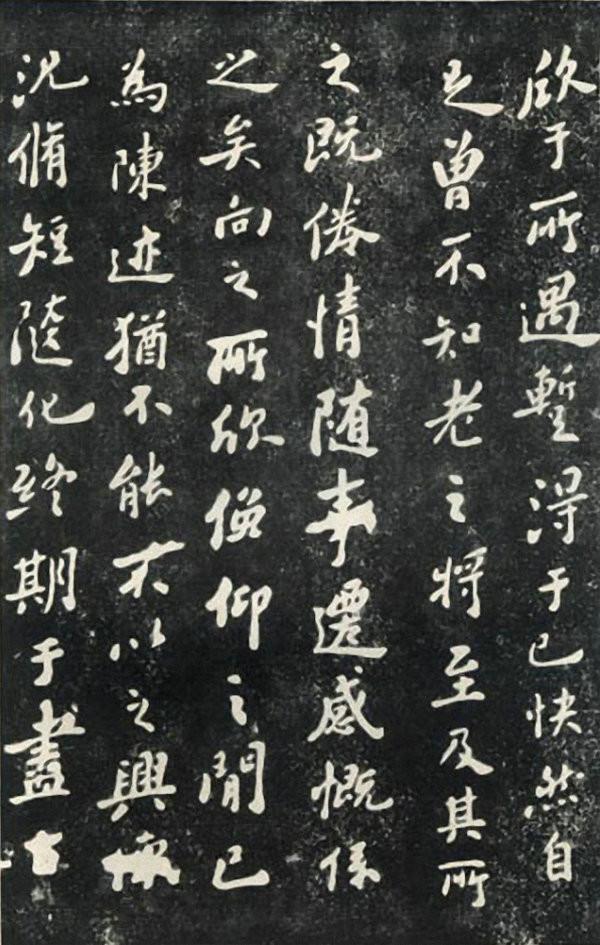 欣于所遇暫得于己快然自
足曾不知老之將至及其所
之既倦情随事遷感慨係
之矣向之所欣俛仰之閒已
為陳迹猶不能不以之興懷
況脩短隨化終期于盡古